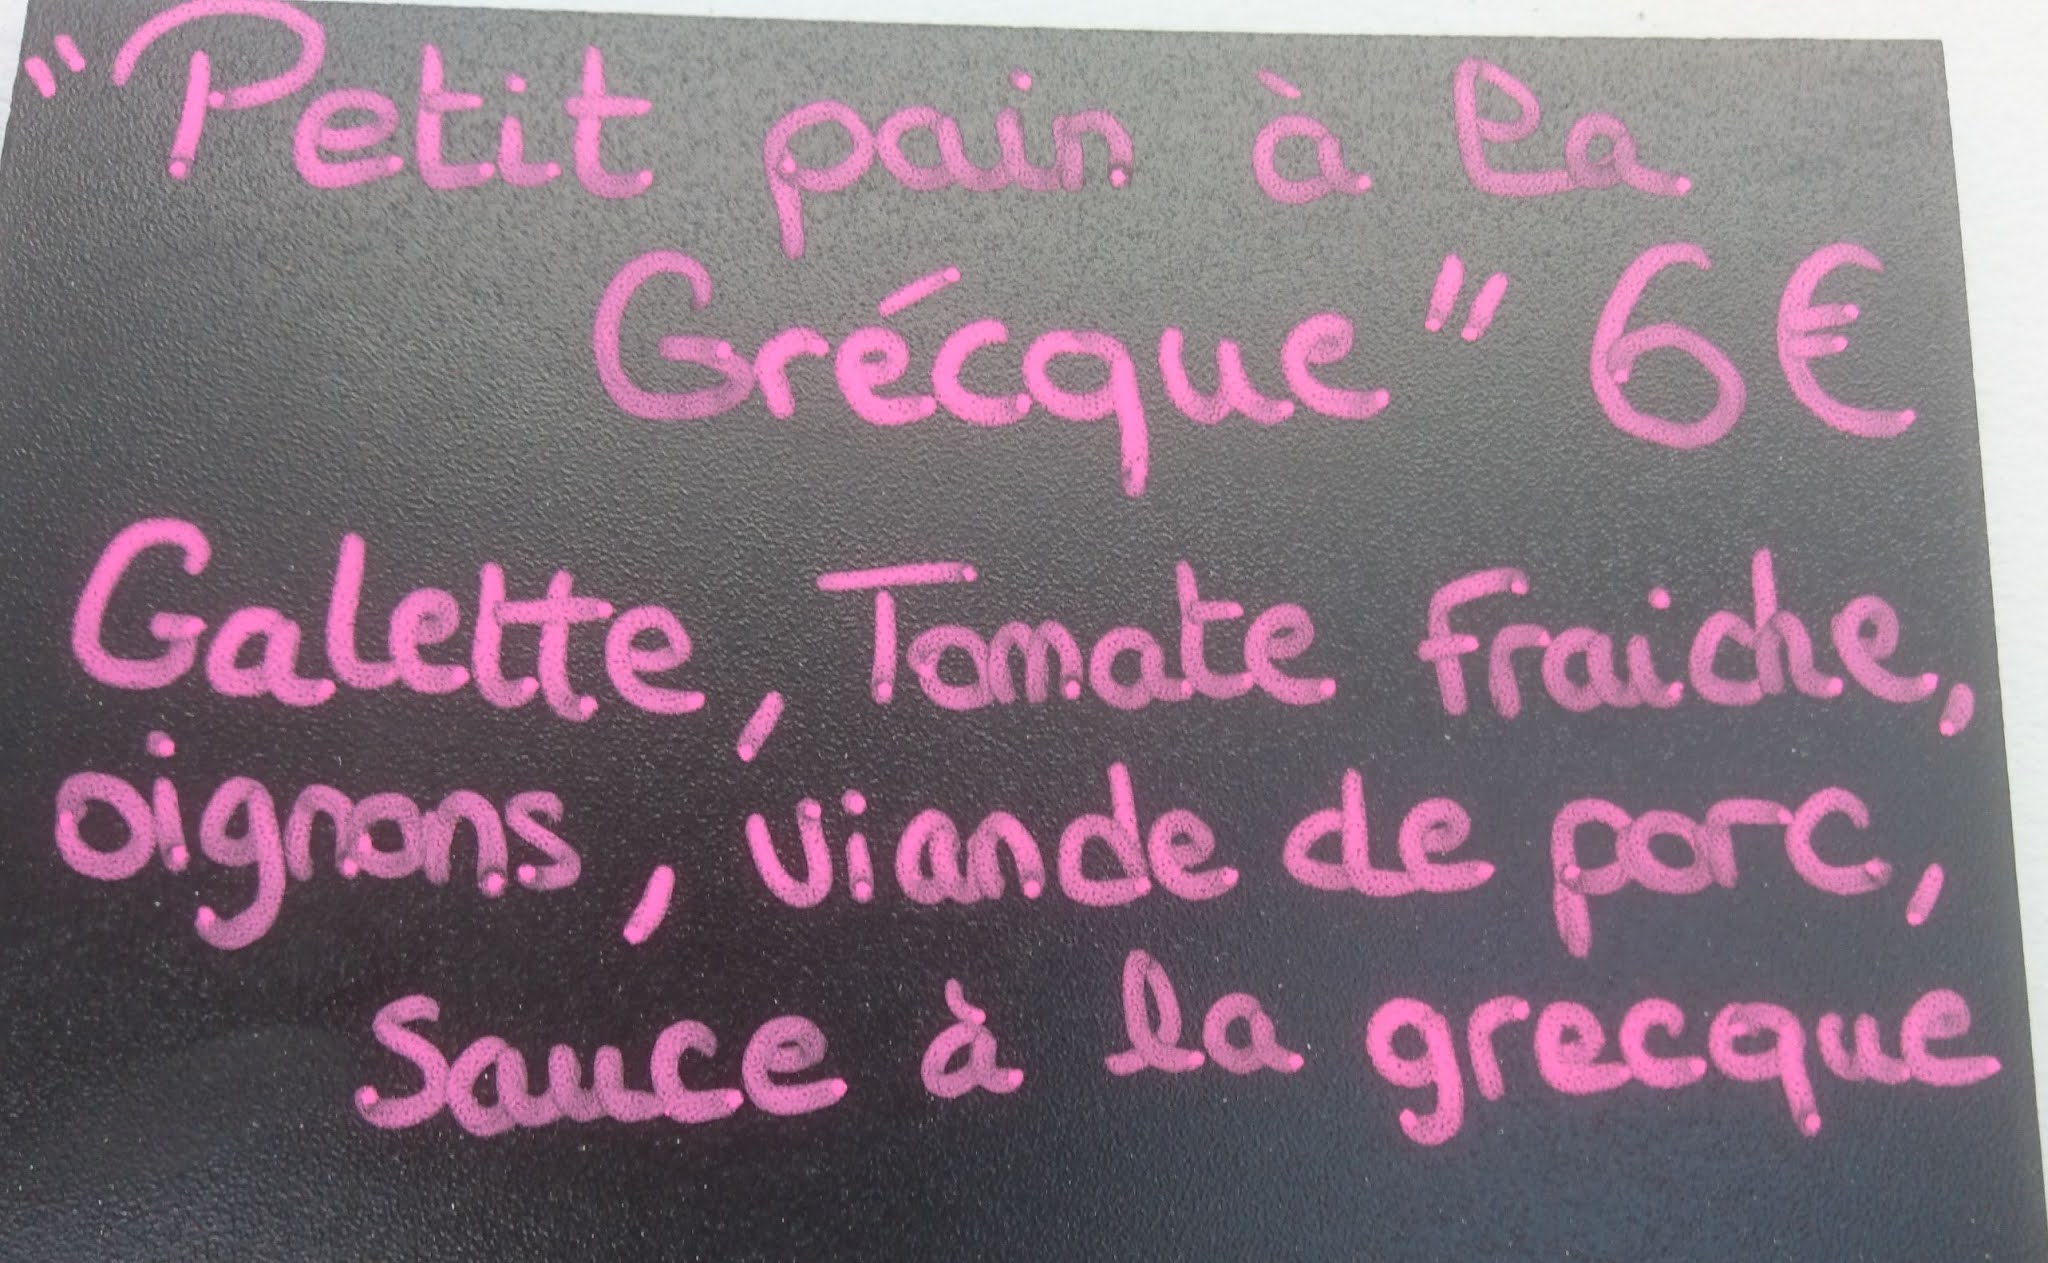 "Petit pain à la
Grécque" 6€
Galette, Tomate fraiche,
oignons, viande de porc,
Sauce à la grecque